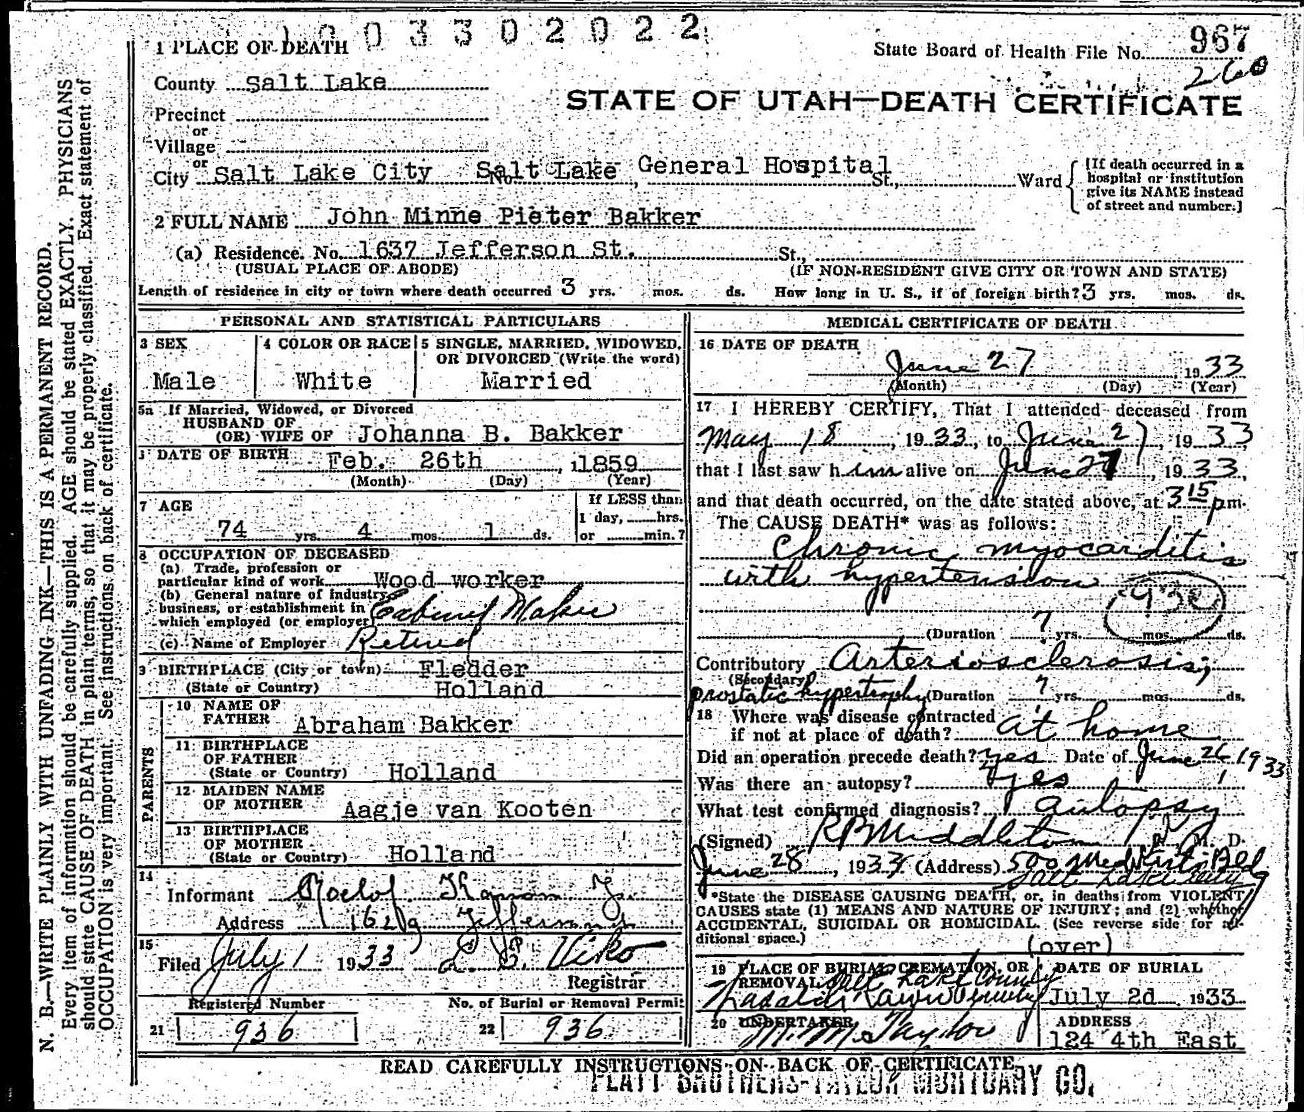 1003302022
1 PLACE OF DEATH
State Board of Health File No. 967
260
County Salt Lake
STATE OF UTAH—DEATH CERTIFICATE
Precinct
or
Village
or
City Salt Lake City No. Salt Lake General Hospital St., Ward
[If death occurred in a hospital or institution give its NAME instead of street and number.]
2 FULL NAME John Minne Pieter Bakker
(a) Residence. No. 1637 Jefferson St. St.,
(USUAL PLACE OF ABODE) (IF NON-RESIDENT GIVE CITY OR TOWN AND STATE)
Length of residence in city or town where death occurred 3 yrs. mos. ds. How long in U. S., if of foreign birth? 3 yrs. mos. ds.
PERSONAL AND STATISTICAL PARTICULARS
3 SEX
Male
4 COLOR OR RACE
White
5 SINGLE, MARRIED, WIDOWED, OR DIVORCED (Write the word)
Married
5a If Married, Widowed, or Divorced
HUSBAND OF
(OR) WIFE OF Johanna B. Bakker
DATE OF BIRTH Feb. 26th, 1859
(Month) (Day) (Year)
7 AGE
74 yrs. 4 mos. 1 ds.
If LESS than
1 day, hrs.
or min.?
8 OCCUPATION OF DECEASED
(a) Trade, profession or
particular kind of work Wood worker
(b) General nature of industry,
business, or establishment in
which employed (or employer) Cabinet Maker
(c) Name of Employer Retired
9 BIRTHPLACE (City or town) Fledder
(State or Country) Holland
PARENTS
10 NAME OF
FATHER Abraham Bakker
11 BIRTHPLACE
OF FATHER
(State or Country) Holland
12 MAIDEN NAME
OF MOTHER Aagje van Kooten
13 BIRTHPLACE
OF MOTHER
(State or Country) Holland
14
Informant Roelof
Address
15
Filed July 1 1933
Registrar
Registered Number
21 936
No. of Burial or Removal Permit
22 936
MEDICAL CERTIFICATE OF DEATH
16 DATE OF DEATH
June 27 1933
(Month) (Day) (Year)
17 I HEREBY CERTIFY, That I attended deceased from
May 18, 1933, to June 27, 1933
that I last saw him alive on June 27, 1933,
and that death occurred, on the date stated above, at 3 15 p.m.
The CAUSE DEATH* was as follows:
Chronic myocarditis
with hypertension
93c
(Duration ? yrs. mos. ds.
Contributory Arteriosclerosis,
(Secondary)
prostatic hypertrophy (Duration ? yrs. mos. ds.
18 Where was disease contracted
if not at place of death? at home
Did an operation precede death? yes Date of June 26, 1933
Was there an autopsy? yes
What test confirmed diagnosis? autopsy
(Signed) RB Middleton M. D.
June 28, 1933 (Address) 500 Med Arts Bldg
Salt Lake City
*State the DISEASE CAUSING DEATH, or, in deaths from VIOLENT
CAUSES state (1) MEANS AND NATURE OF INJURY; and (2) whether
ACCIDENTAL, SUICIDAL OR HOMICIDAL. (See reverse side for ad-
ditional space.)
(over)
19 PLACE OF BURIAL, CREMATION, OR
REMOVAL Salt Lake County
DATE OF BURIAL
July 2d, 1933
20 UNDERTAKER
ADDRESS
124 4th East
READ CAREFULLY INSTRUCTIONS ON BACK OF CERTIFICATE
PLATT BROTHERS-TAYLOR MORTUARY CO.
N. B.—WRITE PLAINLY WITH UNFADING INK—THIS IS A PERMANENT RECORD.
Every item of information should be carefully supplied. AGE should be stated EXACTLY. PHYSICIANS
should state CAUSE OF DEATH in plain terms, so that it may be properly classified. Exact statement of
OCCUPATION is very important. See instructions on back of certificate.